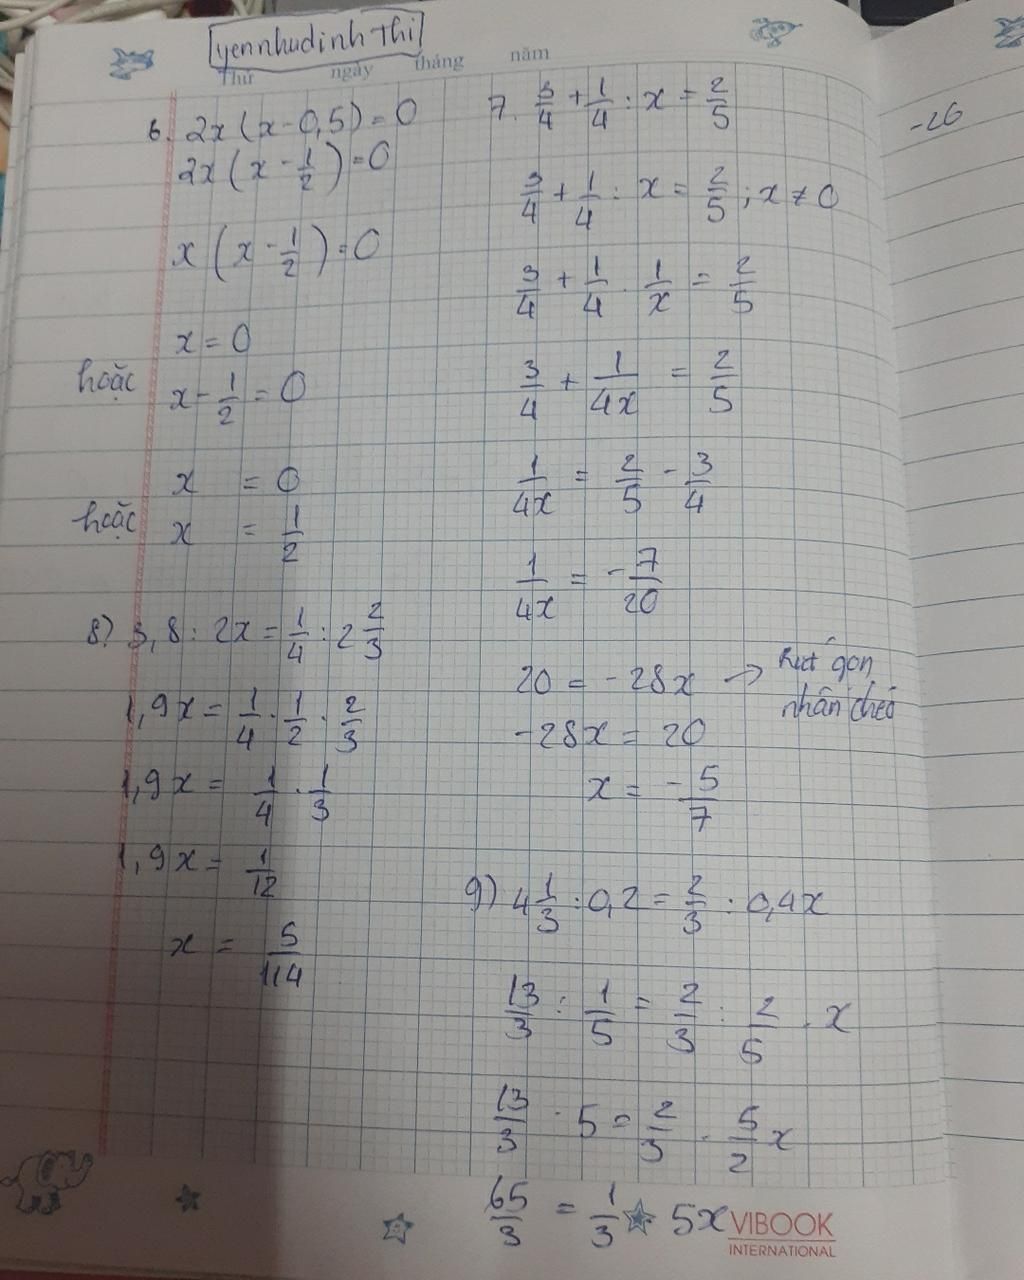 yennhudinhthi
Thứ ngày tháng năm
6. 2x(x-0,5)=0
2x(x-1/2)=0
x(x-1/2)=0
x=0
hoặc x-1/2=0
x = 0
hoặc x = 1/2
8) 3,8 : 2x = 1/4 : 2 2/3
1,9x = 1/4 . 1/2 . 2/3
1,9x = 1/4 . 1/3
1,9x = 1/12
x = 5/114
7. 3/4 + 1/4 : x = 2/5
3/4 + 1/4 : x = 2/5 ; x ≠ 0
3/4 + 1/4 . 1/x = 2/5
3/4 + 1/4x = 2/5
1/4x = 2/5 - 3/4
1/4x = -7/20
20 = -28x → Rút gọn, nhân chéo
-28x = 20
x = -5/7
9) 4 1/3 : 0,2 = 2/3 : 0,4x
13/3 : 1/5 = 2/3 : 2/5 . x
13/3 . 5 = 2/3 . 5/2 x
65/3 = 1/3 5x
VIBOOK
INTERNATIONAL
-26